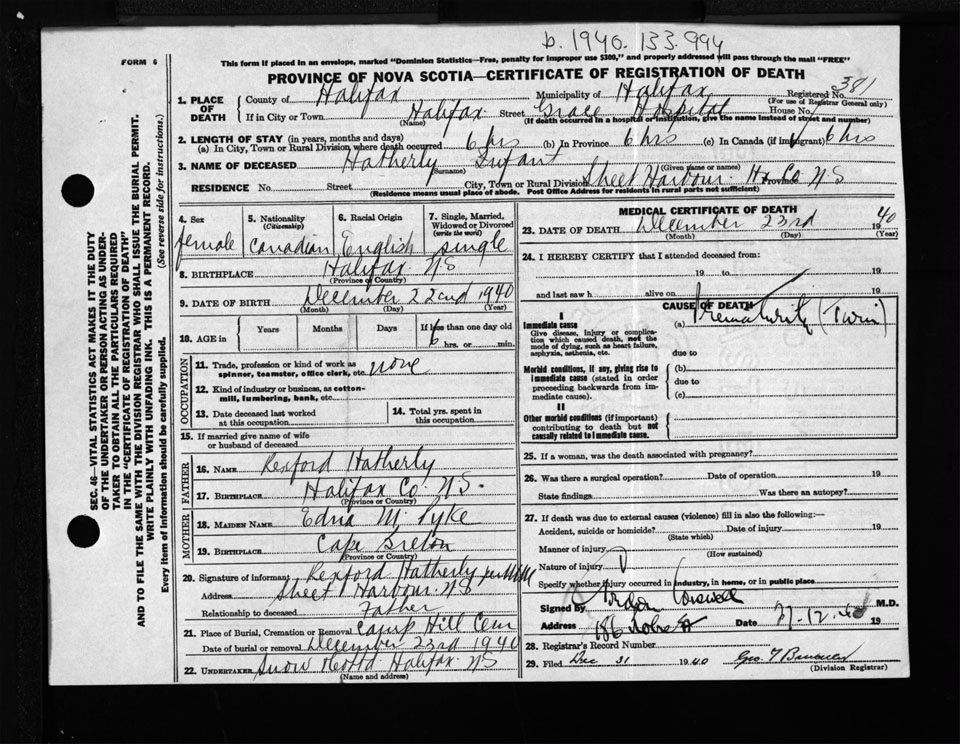 b. 1940. 133.994
FORM 6
This form if placed in an envelope, marked "Dominion Statistics—Free, penalty for improper use $300," and properly addressed will pass through the mail "FREE"
PROVINCE OF NOVA SCOTIA—CERTIFICATE OF REGISTRATION OF DEATH
1. PLACE OF DEATH
County of Halifax Municipality of Halifax Registered No. 381
(For use of Registrar General only)
If in City or Town Halifax Street Grace Hospital House No.
(Name) (If death occurred in a hospital or institution, give the name instead of street and number)
2. LENGTH OF STAY (in years, months and days)
(a) In City, Town or Rural Division where death occurred 6 hrs (b) In Province 6 hrs (c) In Canada (if immigrant) 6 hrs
3. NAME OF DECEASED Hatherly Infant
(Surname) (Given name or names)
RESIDENCE No. Street City, Town or Rural Division Sheet Harbour. Hx Co. Province N.S
(Residence means usual place of abode. Post Office Address for residents in rural parts not sufficient)
4. Sex female
5. Nationality (Citizenship) Canadian
6. Racial Origin English
7. Single, Married, Widowed or Divorced (write the word) single
8. BIRTHPLACE Halifax N.S
(Province or Country)
9. DATE OF BIRTH December 22nd 1940
(Month) (Day) (Year)
10. AGE in Years Months Days If less than one day old
6 hrs. or min.
OCCUPATION
11. Trade, profession or kind of work as spinner, teamster, office clerk, etc. none
12. Kind of industry or business, as cotton-mill, lumbering, bank, etc.
13. Date deceased last worked at this occupation
14. Total yrs. spent in this occupation
15. If married give name of wife or husband of deceased
FATHER
16. NAME Rexford Hatherly
17. BIRTHPLACE Halifax Co. N.S.
(Province or Country)
MOTHER
18. MAIDEN NAME Edna M. Pyke
19. BIRTHPLACE Cape Breton
(Province or Country)
20. Signature of informant Rexford Hatherly per
Address Sheet Harbour N.S
Relationship to deceased Father
21. Place of Burial, Cremation or Removal Camp Hill Cem
Date of burial or removal December 23rd 1940
22. UNDERTAKER Snow Halifax N.S
(Name and address)
MEDICAL CERTIFICATE OF DEATH
23. DATE OF DEATH December 23rd 1940
(Month) (Day) (Year)
24. I HEREBY CERTIFY that I attended deceased from:
19 to 19
and last saw h alive on 19
CAUSE OF DEATH
I
Immediate cause
Give disease, injury or complication which caused death, not the mode of dying, such as heart failure, asphyxia, asthenia, etc.
(a) Prematurity (Twin)
due to
Morbid conditions, if any, giving rise to immediate cause (stated in order proceeding backwards from immediate cause).
(b)
due to
(c)
II
Other morbid conditions (if important) contributing to death but not causally related to immediate cause.
25. If a woman, was the death associated with pregnancy?
26. Was there a surgical operation? Date of operation 19
State findings Was there an autopsy?
27. If death was due to external causes (violence) fill in also the following:—
Accident, suicide or homicide? Date of injury 19
(State which)
Manner of injury
(How sustained)
Nature of injury
Specify whether injury occurred in industry, in home, or in public place
Signed by M.D.
Address 186 Date 27.12.40 19
28. Registrar's Record Number
29. Filed Dec 31 1940 Geo.
(Division Registrar)
SEC. 46—VITAL STATISTICS ACT MAKES IT THE DUTY
OF THE UNDERTAKER OR PERSON ACTING AS UNDER-
TAKER TO OBTAIN ALL THE PARTICULARS REQUIRED
IN THE "CERTIFICATE OF REGISTRATION OF DEATH"
AND TO FILE THE SAME WITH THE DIVISION REGISTRAR WHO SHALL ISSUE THE BURIAL PERMIT.
WRITE PLAINLY WITH UNFADING INK. THIS IS A PERMANENT RECORD.
Every item of information should be carefully supplied. (See reverse side for instructions.)